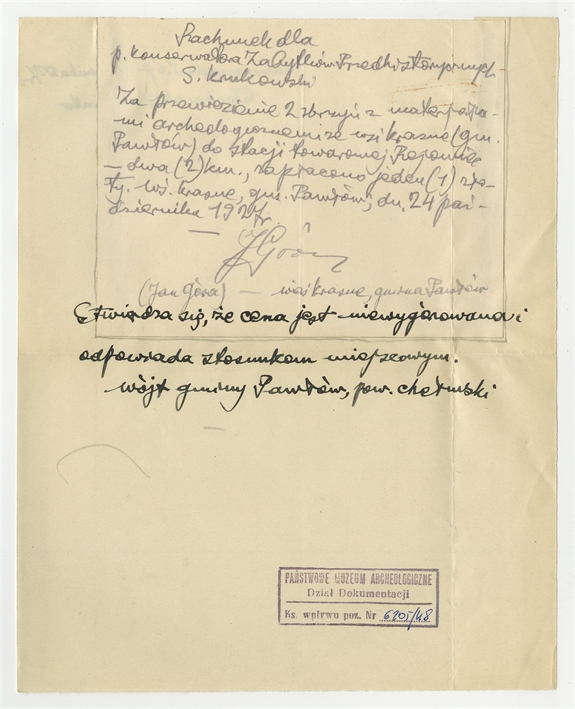 Rachunek dla
p. konserwatora Zabytków Przedhistorycznych
S. Krukowski
Za przewiezienie 2 skrzyń z materjała-
mi archeologicznemi ze wsi Krasne (gm.
Pawłów) do stacji towarowej Rejowiec
– dwa (2) km., zapłacono jeden (1) zło-
ty. Wś. Krasne, gm. Pawłów, dn. 24 paź-
dziernika 1927 r.
– J Góra
(Jan Góra) – wieś Krasne, gmina Pawłów
Stwierdza się, że cena jest niewygórowana i
odpowiada stosunkom miejscowym.
Wójt gminy Pawłów, pow. chełmski
PAŃSTWOWE MUZEUM ARCHEOLOGICZNE
Dział Dokumentacji
Ks. wpływu poz. Nr 6205/48